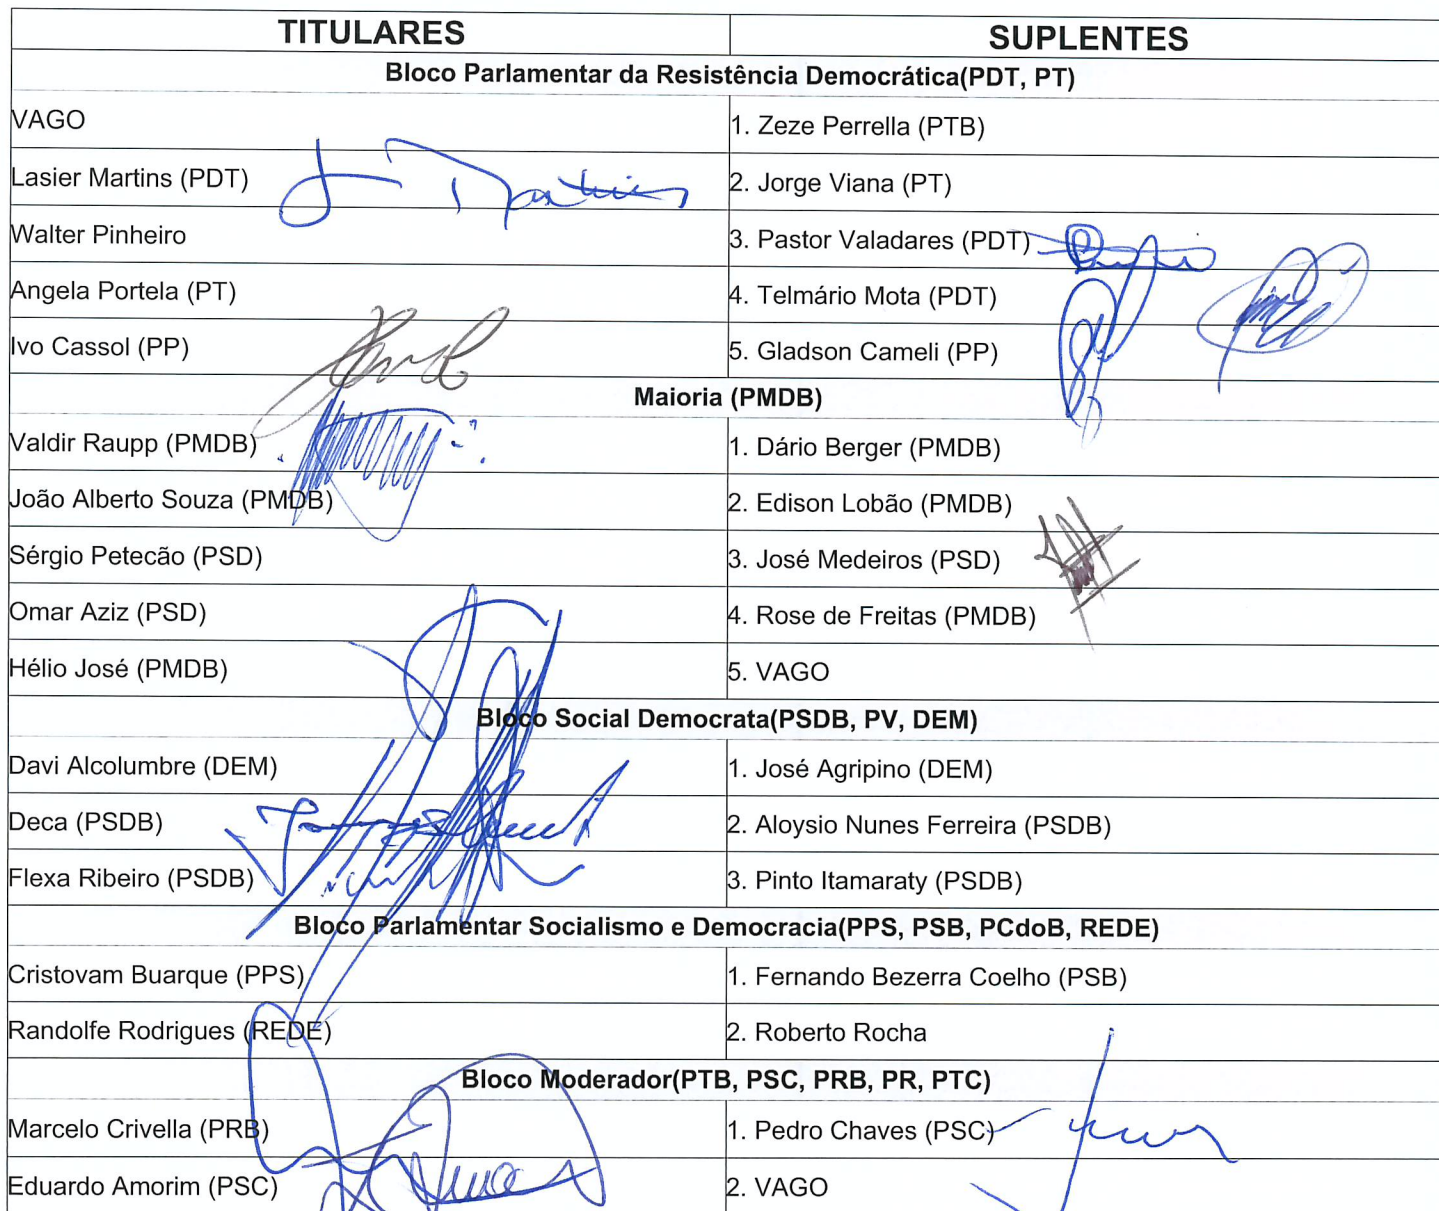 TITULARES SUPLENTES
Bloco Parlamentar da Resistência Democrática(PDT, PT)
VAGO 1. Zeze Perrella (PTB)
Lasier Martins (PDT) 2. Jorge Viana (PT)
Walter Pinheiro 3. Pastor Valadares (PDT)
Angela Portela (PT) 4. Telmário Mota (PDT)
Ivo Cassol (PP) 5. Gladson Cameli (PP)
Maioria (PMDB)
Valdir Raupp (PMDB) 1. Dário Berger (PMDB)
João Alberto Souza (PMDB) 2. Edison Lobão (PMDB)
Sérgio Petecão (PSD) 3. José Medeiros (PSD)
Omar Aziz (PSD) 4. Rose de Freitas (PMDB)
Hélio José (PMDB) 5. VAGO
Bloco Social Democrata(PSDB, PV, DEM)
Davi Alcolumbre (DEM) 1. José Agripino (DEM)
Deca (PSDB) 2. Aloysio Nunes Ferreira (PSDB)
Flexa Ribeiro (PSDB) 3. Pinto Itamaraty (PSDB)
Bloco Parlamentar Socialismo e Democracia(PPS, PSB, PCdoB, REDE)
Cristovam Buarque (PPS) 1. Fernando Bezerra Coelho (PSB)
Randolfe Rodrigues (REDE) 2. Roberto Rocha
Bloco Moderador(PTB, PSC, PRB, PR, PTC)
Marcelo Crivella (PRB) 1. Pedro Chaves (PSC)
Eduardo Amorim (PSC) 2. VAGO